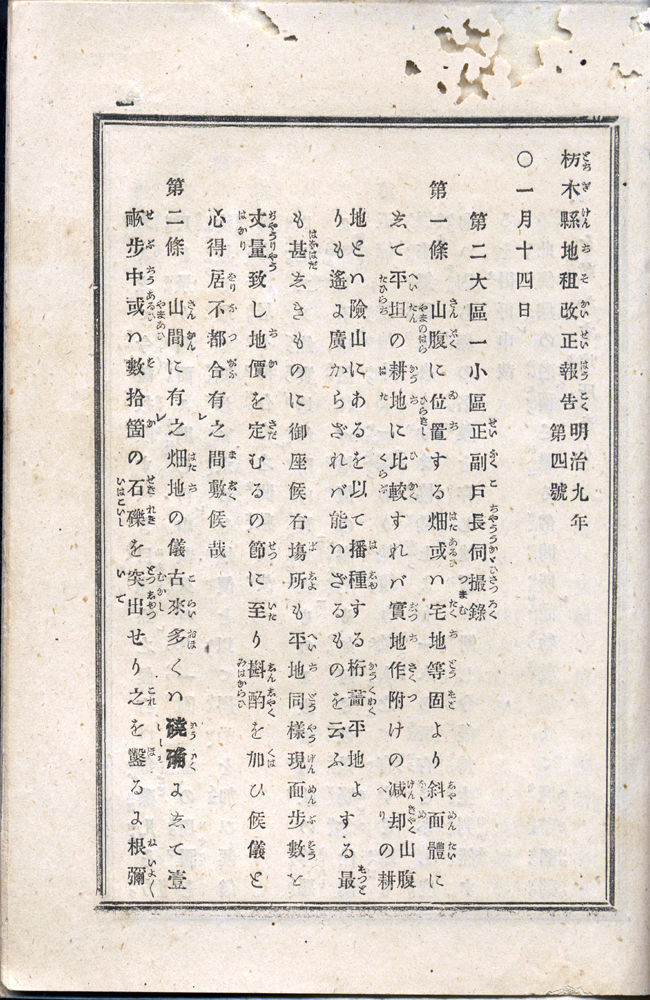 栃木縣地租改正報告 明治九年 第四號
〇一月十四日
第二大區一小區正副戸長伺撮錄
第一條 山腹に位置する畑或ハ宅地等固より斜面體に
ゑて平坦の耕地に比較すれバ實地作附けの減却山腹の耕
地とハ險山にあるを以て播種する桁 平地よする最
りも遙よ廣からざれバ能ハざるものを云ふ
も甚ゑきものに御座候右塲所も平地同樣現面步數を
丈量致し地價を定むるの節に至り斟酌を加ひ候儀と
心得居不都合有之間敷候哉
第二條 山間に有之畑地の儀古來多くハ よゑて壹
畝步中或ハ數拾箇の石礫を突出せり之を鑿るよ根彌